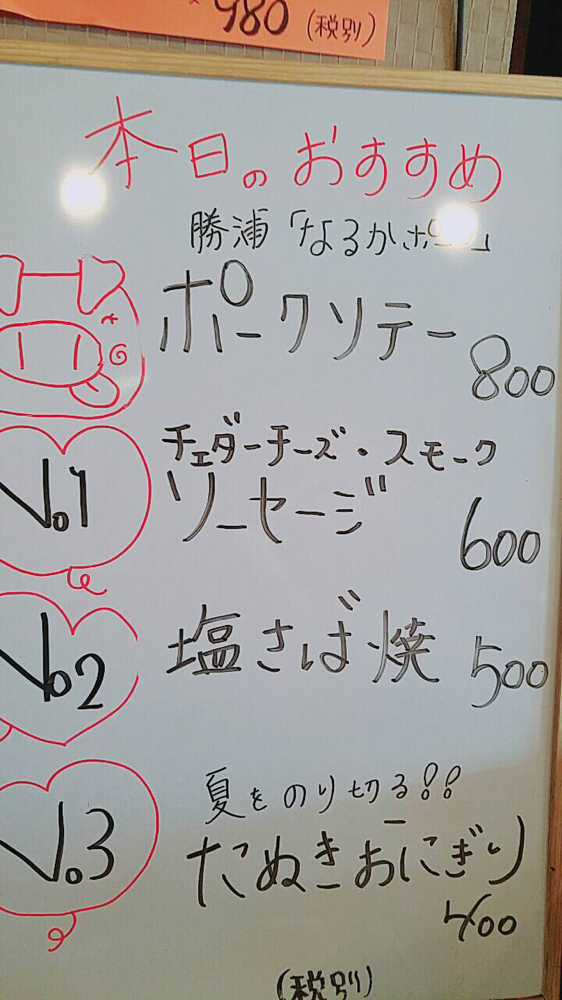 980 (税別)
本日のおすすめ
勝浦「なるか
ポークソテー
800
チェダーチーズ・スモーク
No.1
ソーセージ
600
No2
塩さば焼 500
夏をのり切る!!
No.3
たぬきおにぎり
400
(税別)